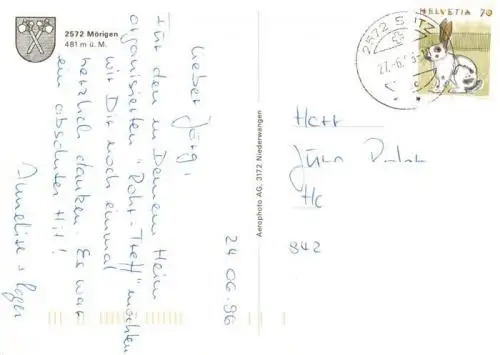 2572 Mörigen
481 m ü. M.
24 06.96
Lieber Jürg,
Für den in Deinem Heim
organisierten "Rohr-Treff" möchten
wir Dir noch einmal
herzlich danken. Es war
ein absoluter Hit!
Annelise + Roger
Aerophoto AG, 3172 Niederwangen
2572 S TZ
27.-6.
HELVETIA 70
Herr
842